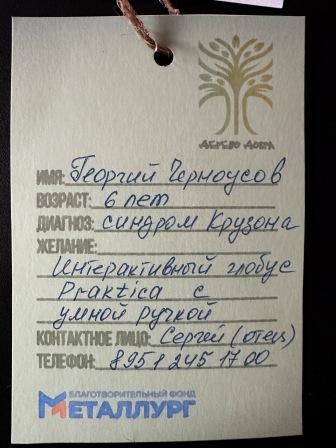 ДЕРЕВО ДОБРА
ИМЯ: Георгий Черноусов
ВОЗРАСТ: 6 лет
ДИАГНОЗ: синдром Крузона
ЖЕЛАНИЕ:
Интерактивный глобус
Praktica с
умной ручкой
КОНТАКТНОЕ ЛИЦО: Сергей (отец)
ТЕЛЕФОН: 8951 245 17 00
БЛАГОТВОРИТЕЛЬНЫЙ ФОНД
МЕТАЛЛУРГ